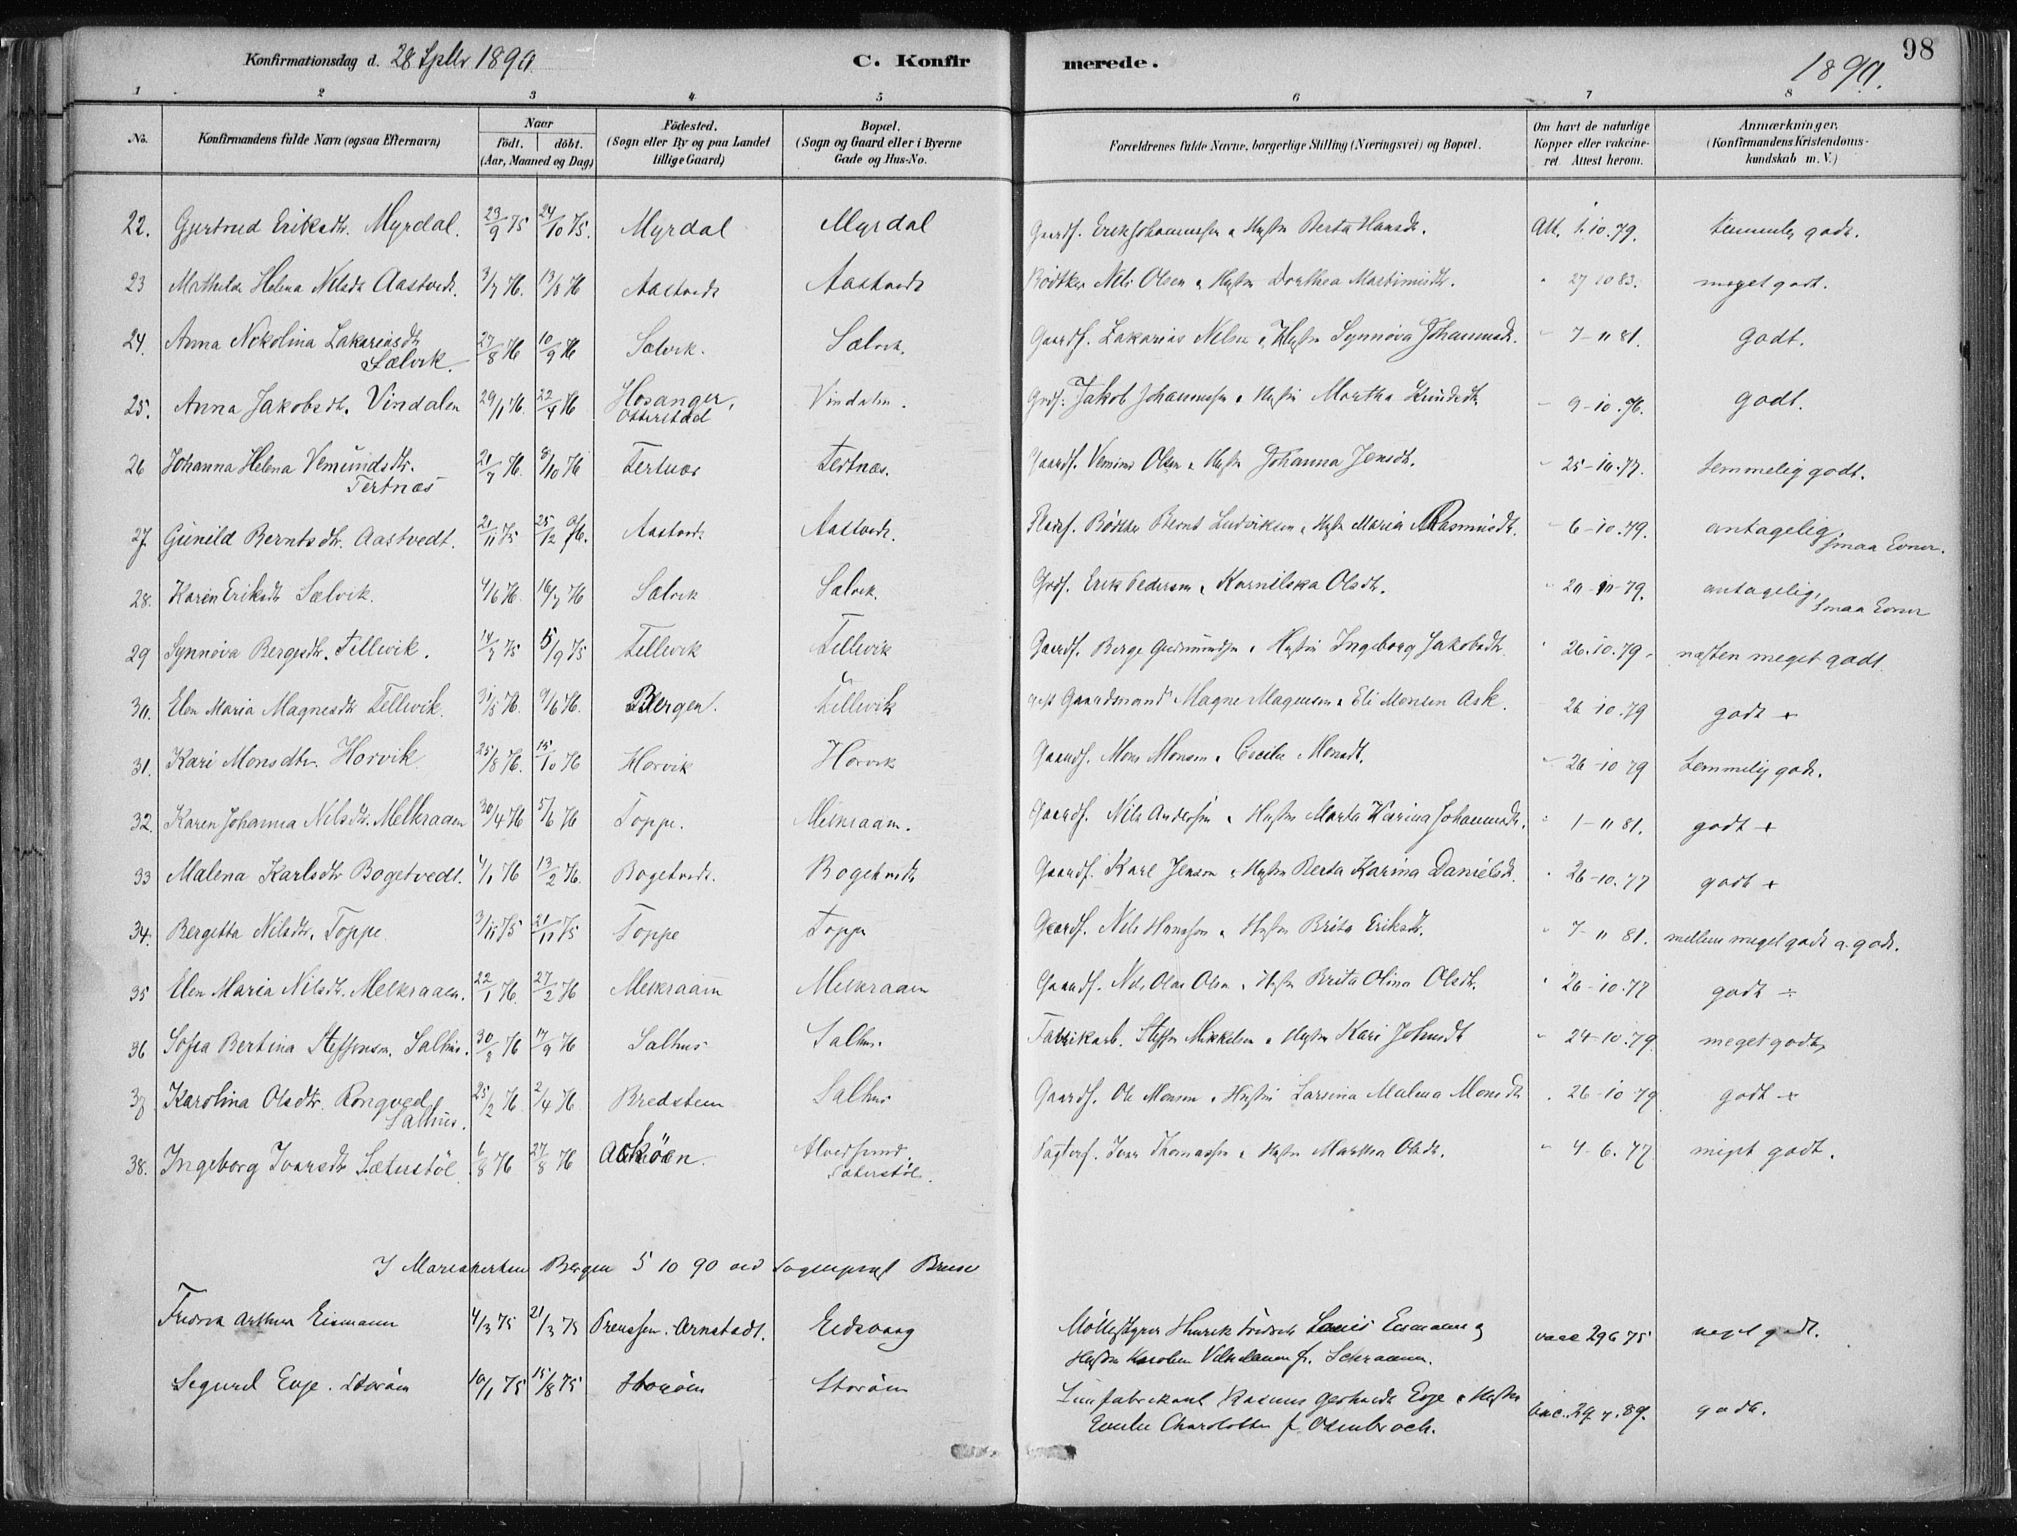 98
Konfirmationsdag d. 28 Septbr 1890.
C. Konfirmerede.
1890.
1 2 3 4 5 6 7 8
No. Konfirmandens fulde Navn (ogsaa Efternavn) Naar födt. döbt. (Aar, Maaned og Dag) Födested. (Sogn eller By og paa Landet tillige Gaard) Bopæl. (Sogn og Gaard eller i Byerne Gade og Hus-No. Forældrenes fulde Navne, borgerlige Stilling (Næringsvei) og Bopæl. Om havt de naturlige Kopper eller vakcineret. Attest herom. Anmærkninger. (Konfirmandens Kristendomskundskab m. V.)
22. Gjertrud Eriksdtr. Myrdal. 23/9 75 24/10 75. Myrdal Myrdal Gaardf. Erik Johannessen & Hustru Berta Hansdt. Att. 1.10.79. temmelig godt.
23 Mathilde Helena Nilsdtr Aastvedt. 3/7 76. 13/8 76 Aastvedt Aastvedt Bödtker Nils Olsen & Hustru Dorthea Martimusdtr. " 27 10 83. meget godt.
24. Anna Nikolina Zakariasdtr Sælvik. 27/8 76 10/9 76 Sælvik. Sælvik. Gaardf. Zakarias Nilsen & Hustru Synnöva Johannesdt. " 7-11 81. godt.
25. Anna Jakobsdtr. Vindalen 29/1 76. 22/4 76 Hosanger, Otterstad Vindalen. Grdf. Jakob Johannessen & Hustru Martha Knudsdtr. " 9-10.76. godt.
26 Johanna Helena Vemundsdtr. Tertnæs 21/9 76. 8/10 76 Tertnæs Tertnæs. Gaardf. Vemund Olsen & Hustru Johanna Jensdt. " 25-10.77. temmelig godt.
27. Gunild Berntsdtr. Aastvedt. 21/11 75 25/12 76. Aastvedt Aastvedt. Bödtker Bernt Ludviksen & Hustru Maria Rasmusdt. " 6-10.79. antagelig, smaa Evner.
28. Karen Eriksdtr Sælvik. 4/6 76. 16/7 76 Sælvik Sælvik. Grdf. Erik Pedersen & Karniliska Olsdtr. " 20-10-79. antagelig, smaa Evner
29 Synnöva Bergesdtr. Tellevik. 14/7 75 5/9 75 Tellevik Tellevik Gaardf. Berge Gudmundsen & Hustru Ingeborg Jakobsdtr. " 26.10.79. næsten meget godt.
30. Elen Maria Magnesdtr Tellevik. 31/5 76. 9/6 76. Bergen. Tellevik Gaardmand Magne Magnesen & Eli Monsen Ask. 26-10.79 godt +
31. Kari Monsdtr. Horvik 25/8 76. 15/10 76 Horvik Horvik Gaardf. Mons Monsen & Cecilia Monsdt. " 26-10 79 temmelig godt.
32. Karen Johanna Nilsdtr. Melkraaen 30/4 76 5/6 76 Toppe. Melkraaen. Gaardf. Nils Andersen & Hustru Marta Karina Johannesdt. " 1-11 81. godt +
33 Malena Karlsdtr Bogetvedt. 4/1 76 13/2 76. Bogetvedt. Bogetvedt Gaardf. Karl Jensen & Hustru Berta Karina Danielsdt. " 26-10.77 godt +
34. Bergetta Nilsdtr. Toppe. 3/11 75 21/11 75 Toppe Toppe Gaardf. Nils Hansen & Hustru Brita Eriksdt. " 7-11 81. mellem meget godt o. godt.
35 Elen Maria Nilsdt. Melkraaen. 22/1 76. 27/2 76 Melkraaen Melkraaen Gaardf. Nils Olai Olsen & Hustru Brita Olina Olsdtr. " 26-10.77 godt ÷
36 Sofia Bertina Steffensen. Salhus. 30/8 76 17/9 76 Salhus Salhus. Fabrikarb. Steffen Mikkelsen & Hustru Kari Johnsdt " 24-10.79. meget godt
37 Karolina Olsdtr. Rongved Salhus. 25/2 76. 2/4 76 Bredstein Salhus Gaardf. Ole Monsen & Hustru Larsina Malena Monsdt . 26-10 79 godt +
38. Ingeborg Ivarsdtr Sæterstöl 6/8 76 27/8 76 Alversund. Sæterstöl. Ivar Thomassen & Hustru Martha Olsdt. " 4-6.77 meget godt.
I Mariakirken Bergen 5 10 90 ved Sogneprest Bruun
Fredrik Arthur Eismann 4/3 75 21/3 75 Preussen. Arnstadt. Eidsvaag Möllestyrer Henrik Fredrik Louis Eismann og Hustru Karoline Vilhelmine f. Schramm. vacc 29 6 75 meget godt.
Sigurd Evje. Storöen 10/1 75 15/8 75 Storöen Storöen Limfabrikant Rasmus Gerhardt Evje & Hustru Emilie Charlotte f. Osenbroch. Vac. 29.7.89. godt.